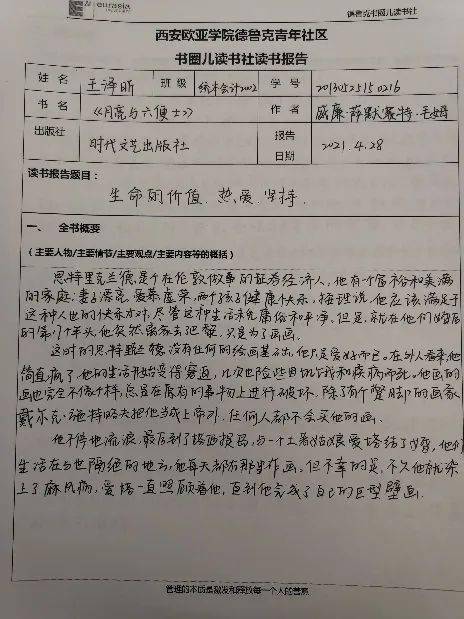 eurasia
德鲁克书圈儿读书社
西安欧亚学院德鲁克青年社区
书圈儿读书社读书报告
姓 名 王泽昕 班 级 统本会计2002 学 号 20130525150216
书 名 《月亮与六便士》 作 者 威廉·萨默塞特·毛姆
出版社 时代文艺出版社 报告日期 2021.4.28
读书报告题目:
生命的价值、热爱、坚持.
一、 全书概要
(主要人物/主要情节/主要观点/主要内容等的概括)
思特里克兰德是个在伦敦做事的证券经济人,他有个富裕和美满
的家庭:妻子漂亮,爱慕虚荣,两个孩子健康快乐,按理说,他应该满足于
这种人世的快乐才对,尽管这种生活未免庸俗和平淡.但是,就在他们婚后
的第17个年头,他突然离家去巴黎,只是为了画画.
这时的思特里克兰德没有任何的绘画基础,他只是爱好而已.在别人看来,他
简直疯了,他的生活开始变得窘迫,几次也险些因饥饿和疾病而死.他画的
画也完全不像个样,总是在原有的事物上进行破坏.除了有个蹩脚的画家
戴尔克·施特略夫把他当成上帝外,任何人都不会买他的画.
他不停地流浪,最后到了塔西提岛,与一个土著姑娘爱塔结了婚,他们
生活在与世隔绝的地方,他每天都在那里作画.但不幸的是,不久他就染
上了麻风病,爱塔一直照顾着他,直到他完成了自己的巨型壁画.
管理的本质是激发和释放每一个人的善意